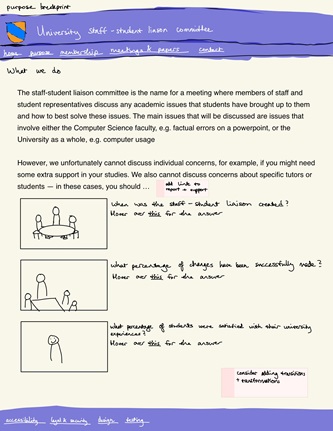 purpose blueprint
University staff-student liason committee
home purpose membership meetings & papers contact
What we do
The staff-student liaison committee is the name for a meeting where members of staff and
student representatives discuss any academic issues that students have brought up to them
and how to best solve these issues. The main issues that will be discussed are issues that
involve either the Computer Science faculty, e.g. factual errors on a powerpoint, or the
University as a whole, e.g. computer usage
However, we unfortunately cannot discuss individual concerns, for example, if you might need
some extra support in your studies. We also cannot discuss concerns about specific tutors or
students — in these cases, you should ...
add link to
report + support
When was the staff-student liaison created?
Hover over this for the answer
What percentage of changes have been successfully made?
Hover over this for the answer
What percentage of students were satisfied with their university
experience?
Hover over this for the answer
consider adding transitions
+ transformations
accessibility legal & security design testing